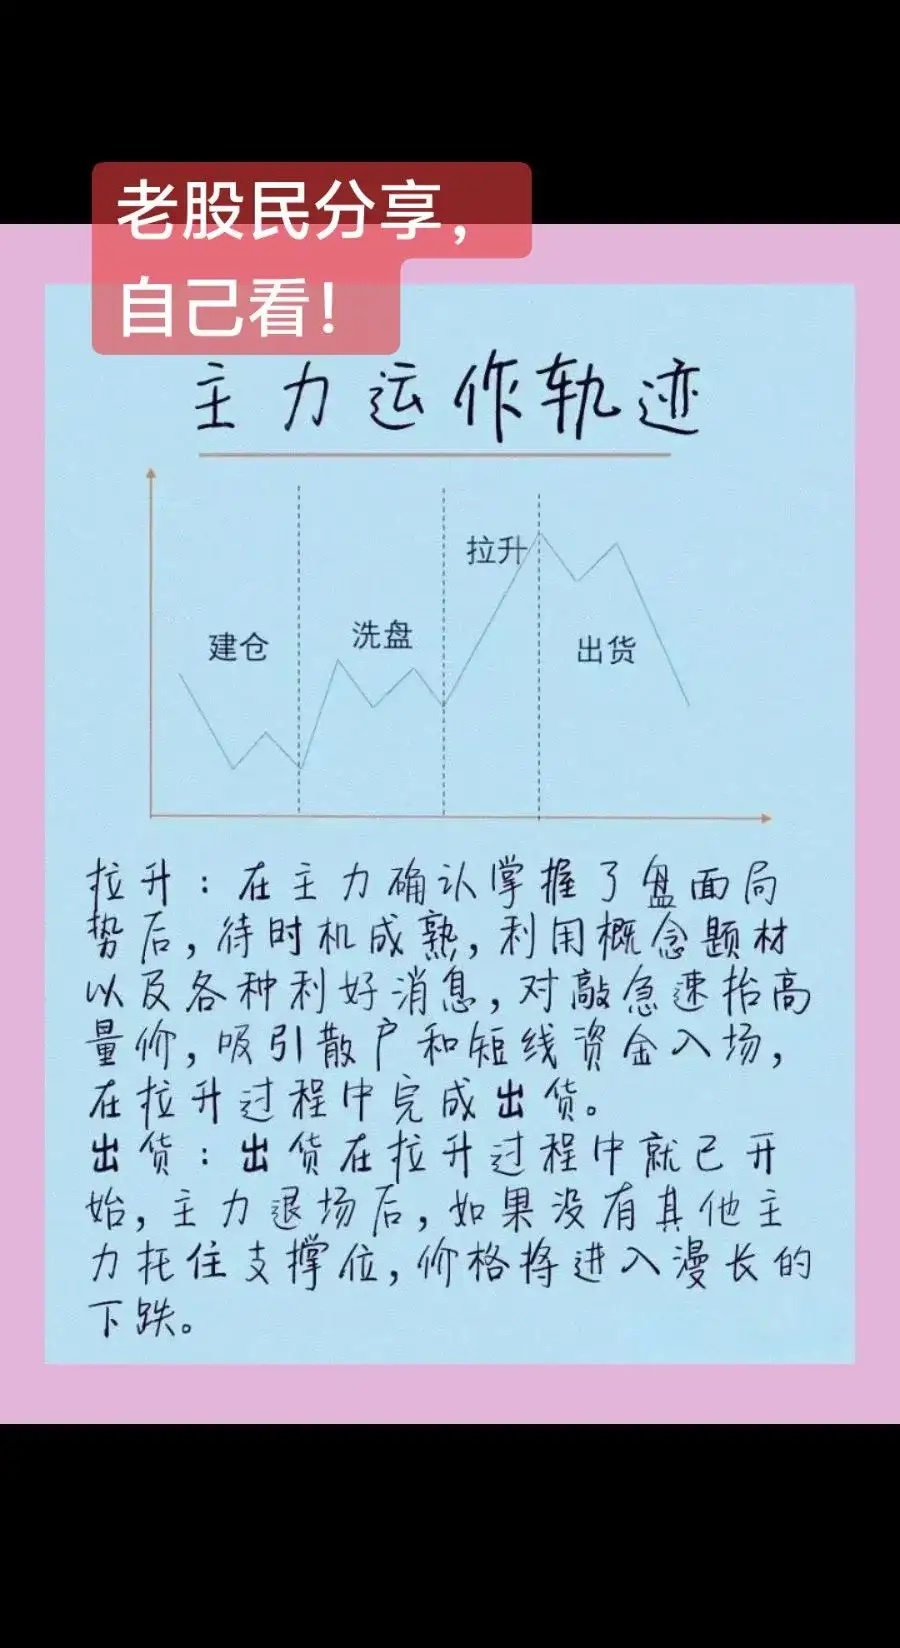 老股民分享，
自己看！
主力运作轨迹
拉升
洗盘
建仓
出货
拉升：在主力确认掌握了盘面局
势后，待时机成熟，利用概念题材
以及各种利好消息，对敲急速抬高
量价，吸引散户和短线资金入场，
在拉升过程中完成出货。
出货：出货在拉升过程中就已开
始，主力退场后，如果没有其他主
力托住支撑位，价格将进入漫长的
下跌。